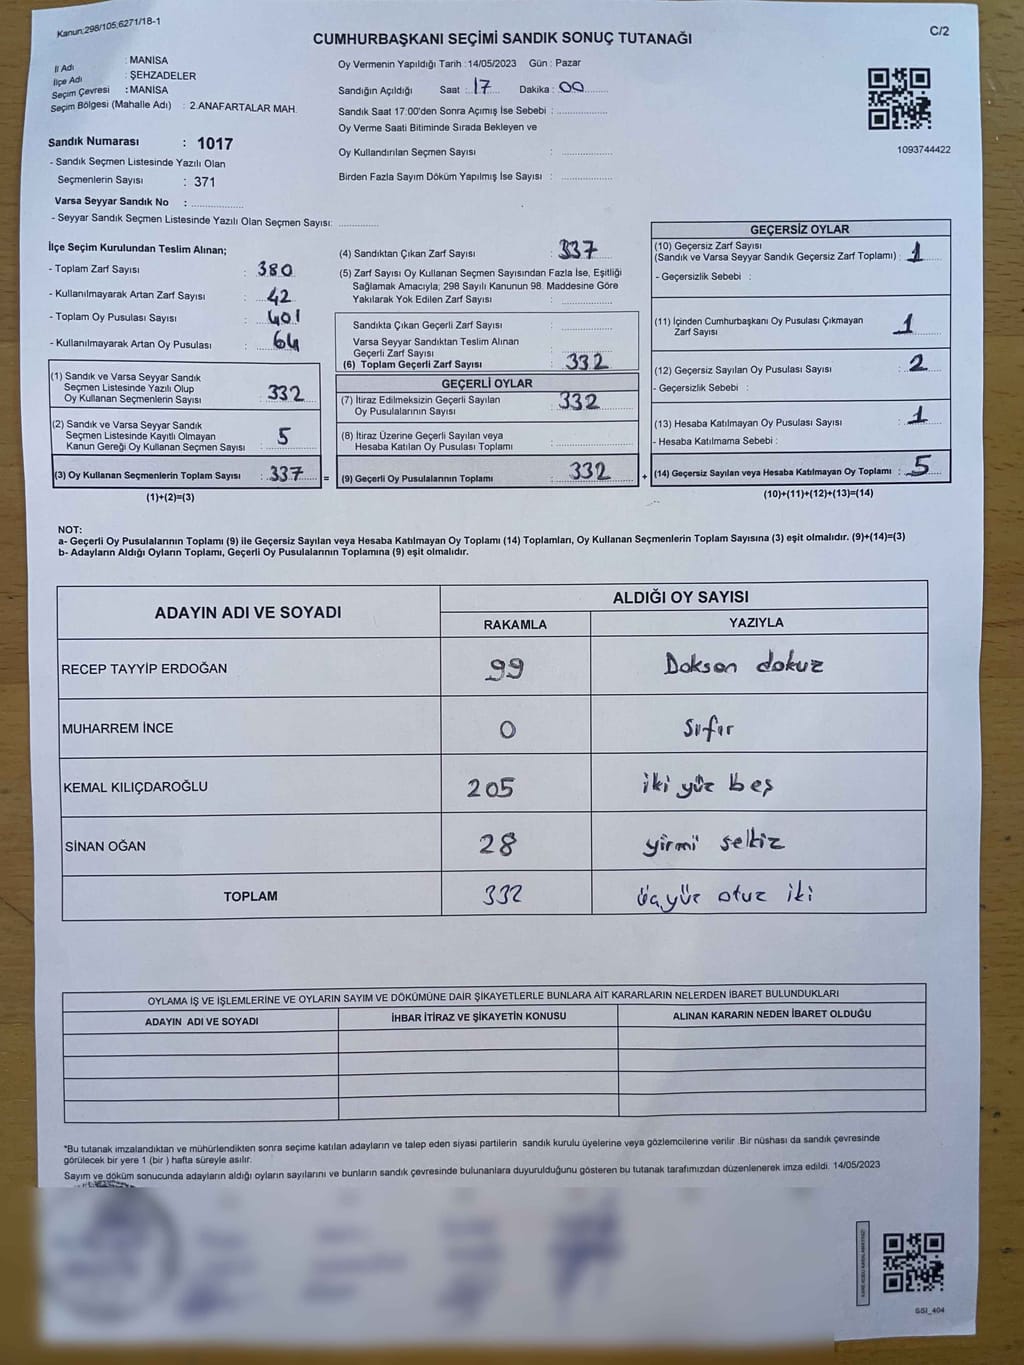 Kanun:298/105,6271/18-1
C/2
CUMHURBAŞKANI SEÇİMİ SANDIK SONUÇ TUTANAĞI
İl Adı : MANİSA
İlçe Adı : ŞEHZADELER
Seçim Çevresi : MANİSA
Seçim Bölgesi (Mahalle Adı) : 2.ANAFARTALAR MAH.
Oy Vermenin Yapıldığı Tarih :14/05/2023 Gün : Pazar
Sandığın Açıldığı Saat : 17 Dakika : 00
Sandık Saat 17:00'den Sonra Açımış İse Sebebi :
Oy Verme Saati Bitiminde Sırada Bekleyen ve
Oy Kullandırılan Seçmen Sayısı :
Birden Fazla Sayım Döküm Yapılmış İse Sayısı :
1093744422
Sandık Numarası : 1017
- Sandık Seçmen Listesinde Yazılı Olan
Seçmenlerin Sayısı : 371
Varsa Seyyar Sandık No :
- Seyyar Sandık Seçmen Listesinde Yazılı Olan Seçmen Sayısı:
İlçe Seçim Kurulundan Teslim Alınan;
- Toplam Zarf Sayısı : 380
- Kullanılmayarak Artan Zarf Sayısı : 42
- Toplam Oy Pusulası Sayısı : 401
- Kullanılmayarak Artan Oy Pusulası : 64
(1) Sandık ve Varsa Seyyar Sandık
Seçmen Listesinde Yazılı Olup
Oy Kullanan Seçmenlerin Sayısı : 332
(2) Sandık ve Varsa Seyyar Sandık
Seçmen Listesinde Kayıtlı Olmayan
Kanun Gereği Oy Kullanan Seçmen Sayısı : 5
(3) Oy Kullanan Seçmenlerin Toplam Sayısı : 337 =
(1)+(2)=(3)
(4) Sandıktan Çıkan Zarf Sayısı : 337
(5) Zarf Sayısı Oy Kullanan Seçmen Sayısından Fazla İse, Eşitliği
Sağlamak Amacıyla; 298 Sayılı Kanunun 98. Maddesine Göre
Yakılarak Yok Edilen Zarf Sayısı :
Sandıkta Çıkan Geçerli Zarf Sayısı :
Varsa Seyyar Sandıktan Teslim Alınan
Geçerli Zarf Sayısı :
(6) Toplam Geçerli Zarf Sayısı : 332
GEÇERLİ OYLAR
(7) İtiraz Edilmeksizin Geçerli Sayılan
Oy Pusulalarının Sayısı : 332
(8) İtiraz Üzerine Geçerli Sayılan veya
Hesaba Katılan Oy Pusulası Toplamı :
(9) Geçerli Oy Pusulalarının Toplamı : 332 +
GEÇERSİZ OYLAR
(10) Geçersiz Zarf Sayısı
(Sandık ve Varsa Seyyar Sandık Geçersiz Zarf Toplamı) : 1
- Geçersizlik Sebebi :
(11) İçinden Cumhurbaşkanı Oy Pusulası Çıkmayan
Zarf Sayısı : 1
(12) Geçersiz Sayılan Oy Pusulası Sayısı : 2
- Geçersizlik Sebebi :
(13) Hesaba Katılmayan Oy Pusulası Sayısı : 1
- Hesaba Katılmama Sebebi :
(14) Geçersiz Sayılan veya Hesaba Katılmayan Oy Toplamı : 5
(10)+(11)+(12)+(13)=(14)
NOT:
a- Geçerli Oy Pusulalarının Toplamı (9) ile Geçersiz Sayılan veya Hesaba Katılmayan Oy Toplamı (14) Toplamları, Oy Kullanan Seçmenlerin Toplam Sayısına (3) eşit olmalıdır. (9)+(14)=(3)
b- Adayların Aldığı Oyların Toplamı, Geçerli Oy Pusulalarının Toplamına (9) eşit olmalıdır.
ADAYIN ADI VE SOYADI ALDIĞI OY SAYISI
RAKAMLA YAZIYLA
RECEP TAYYİP ERDOĞAN 99 Doksan dokuz
MUHARREM İNCE 0 Sıfır
KEMAL KILIÇDAROĞLU 205 iki yüz beş
SİNAN OĞAN 28 yirmi sekiz
TOPLAM 332 üçyüz otuz iki
OYLAMA İŞ VE İŞLEMLERİNE VE OYLARIN SAYIM VE DÖKÜMÜNE DAİR ŞİKAYETLERLE BUNLARA AİT KARARLARIN NELERDEN İBARET BULUNDUKLARI
ADAYIN ADI VE SOYADI İHBAR İTİRAZ VE ŞİKAYETİN KONUSU ALINAN KARARIN NEDEN İBARET OLDUĞU
*Bu tutanak imzalandıktan ve mühürlendikten sonra seçime katılan adayların ve talep eden siyasi partilerin sandık kurulu üyelerine veya gözlemcilerine verilir .Bir nüshası da sandık çevresinde
görülecek bir yere 1 (bir ) hafta süreyle asılır.
Sayım ve döküm sonucunda adayların aldığı oyların sayılarını ve bunların sandık çevresinde bulunanlara duyurulduğunu gösteren bu tutanak tarafımızdan düzenlenerek imza edildi. 14/05/2023
GSI_404